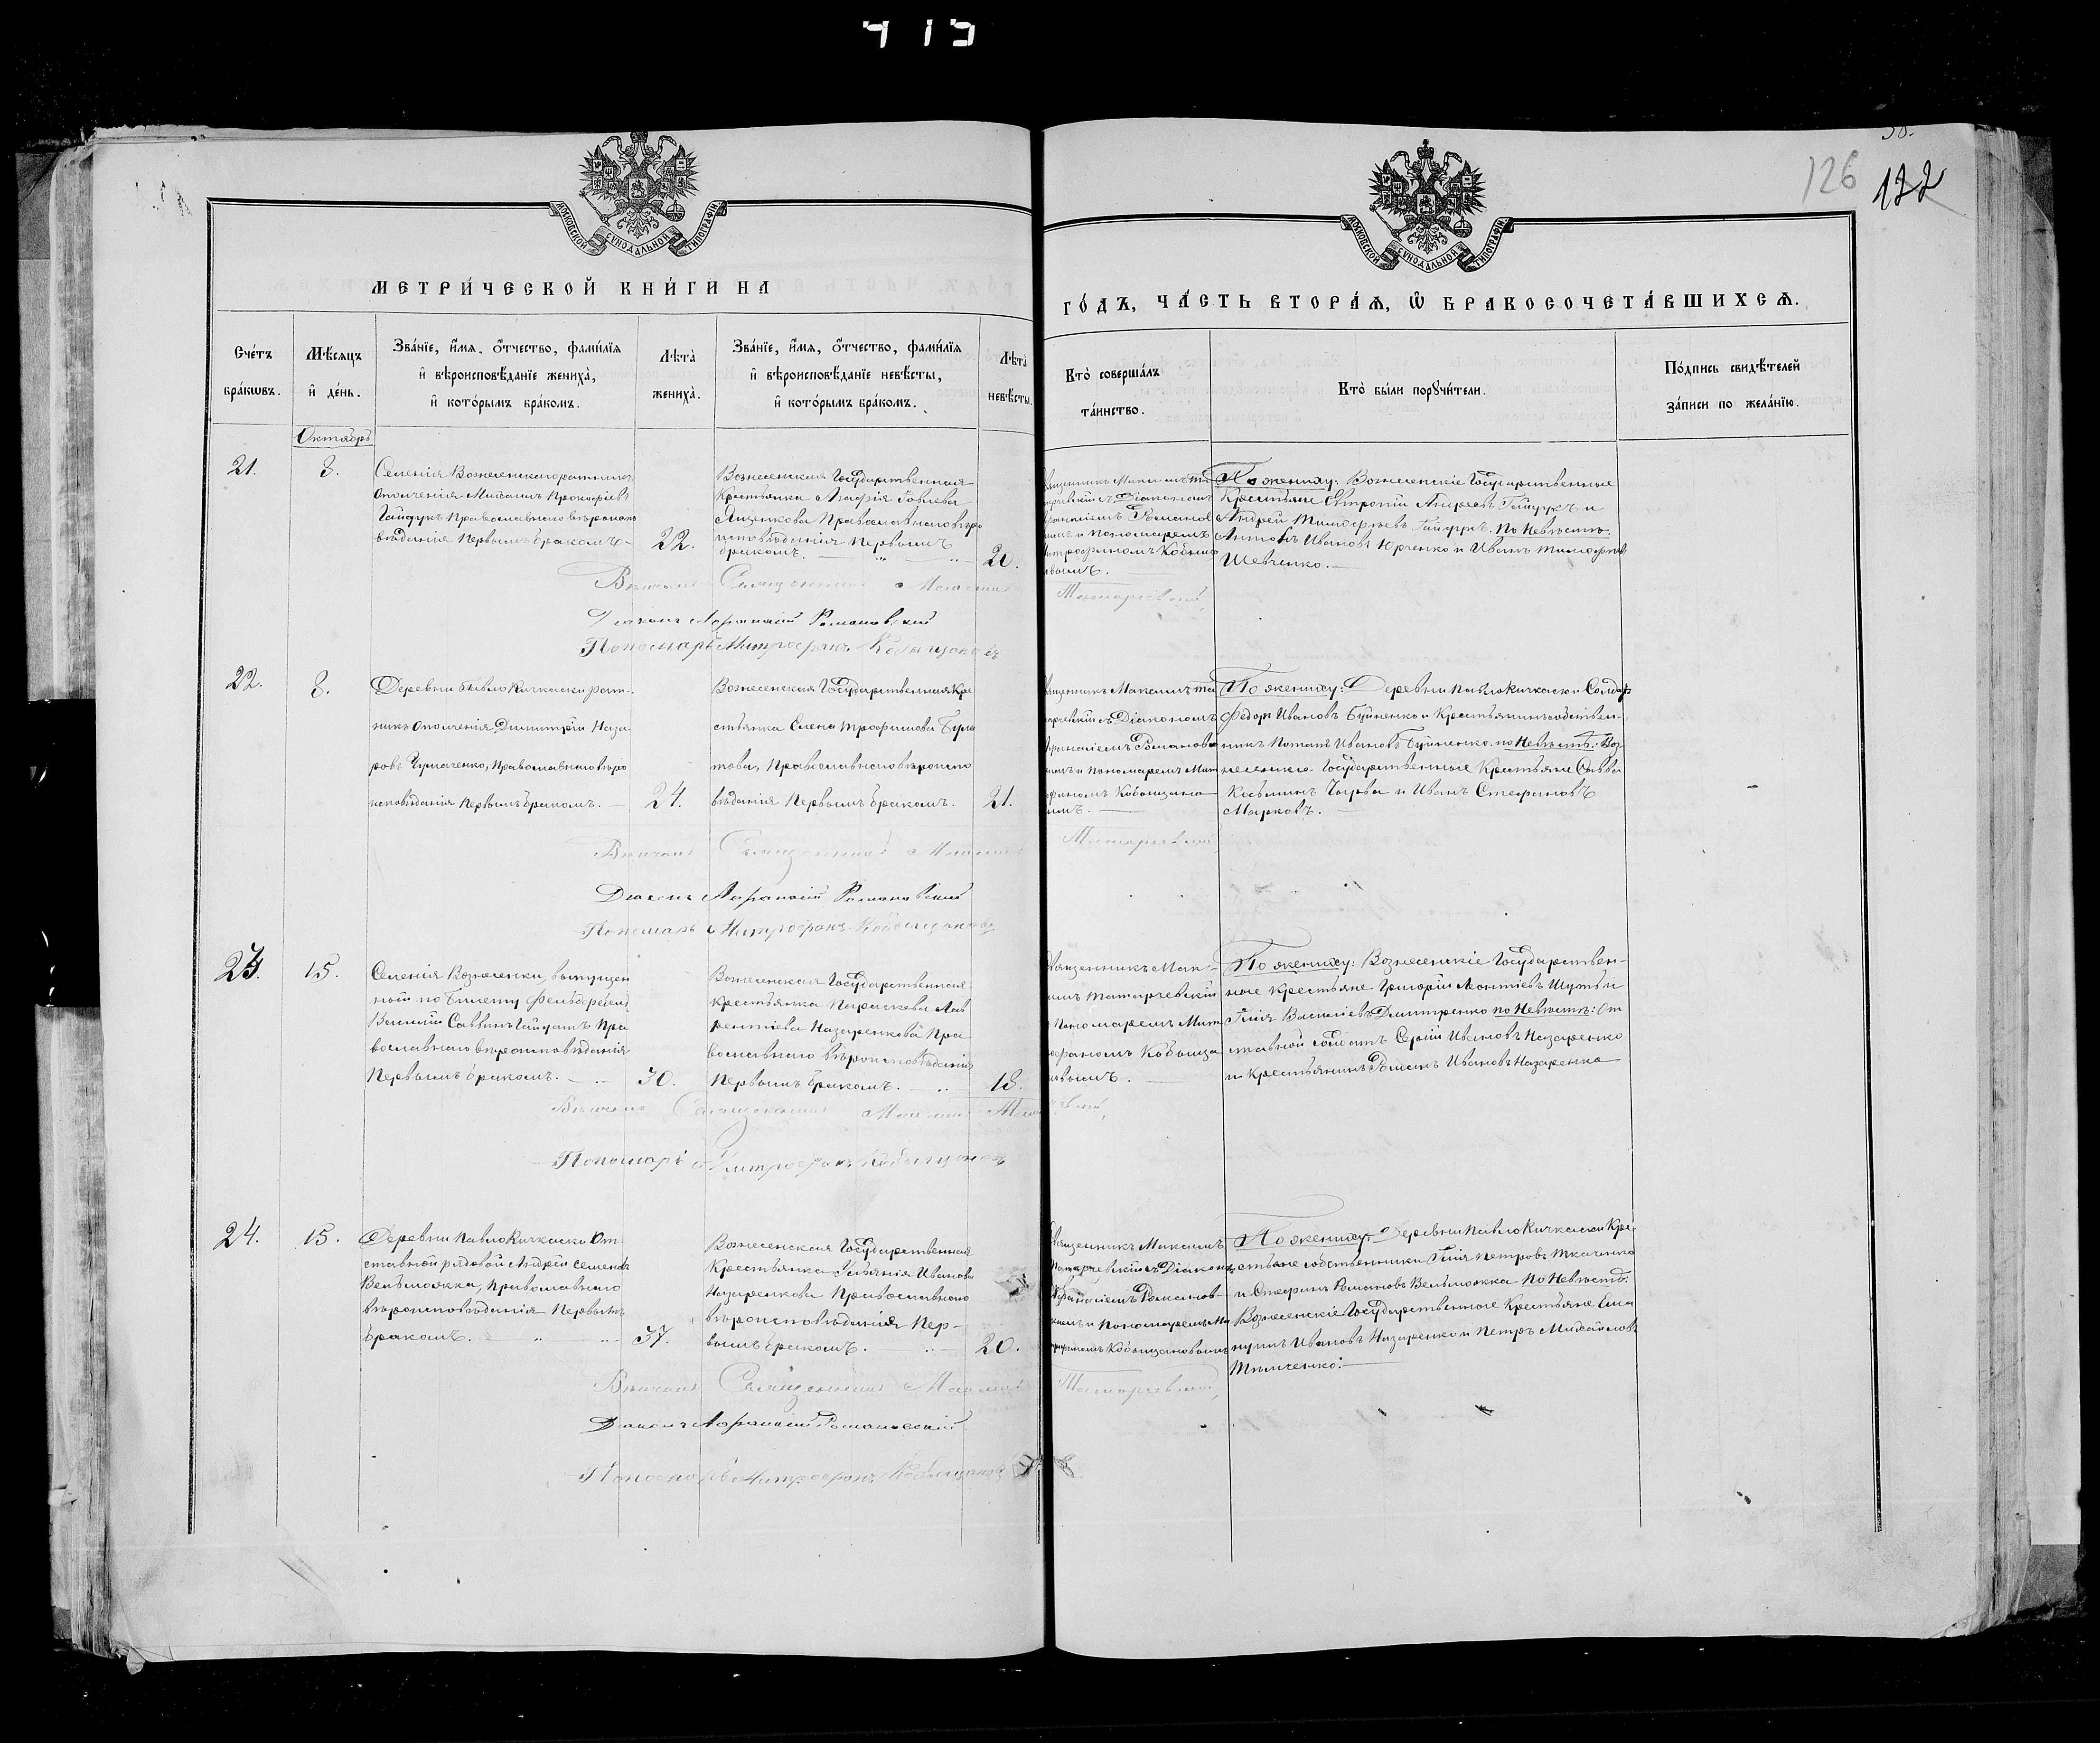 415
126
122
МОСКОВСКОЙ СУНОДАЛЬНОЙ ТИПОГРАФІИ
МОСКОВСКОЙ СУНОДАЛЬНОЙ ТИПОГРАФІИ
МЕТРИ́ЧЕСКОЙ КНИ́ГИ НА
ГО́ДЪ, ЧА́СТЬ ВТОРА́Я, Ѡ БРАКОСОЧЕТА́ВШИХСЯ.
Сче́тъ бра́кѡвъ.
Мѣ́сяцъ и҆ де́нь.
Зва́нїе, и҆́мя, ѻ҆́тчество, фами́лїя и҆ вѣроисповѣ́данїе жениха̀, и҆ кото́рымъ бра́комъ.
Лѣ́та̀ жениха̀.
Зва́нїе, и҆́мя, ѻ҆́тчество, фами́лїя и҆ вѣроисповѣ́данїе невѣ́сты, и҆ кото́рымъ бра́комъ.
Лѣ́та̀ невѣ́сты.
Кто̀ соверша́лъ та́инство.
Кто̀ бы́ли порꙋчи́тели.
По́дпись свидѣ́телей за́писи по жела́нїю.
Октябрь
21.
8.
Селенія Вознесенского ратникъ
ополченія Михаилъ Прокофіевъ
Гайдукъ Православнаго вѣроиспо
вѣданія Первымъ бракомъ
22.
Вознесенская Государственная
Крестьянка Агафія
Яценкова Православнаго вѣро
исповѣданія Первымъ
бракомъ.
20.
Священникъ Максимъ Та
тарчевскій съ Діакономъ
Афанасіемъ Романов
скимъ и Пономаремъ
Митрофаномъ Кобыща
новымъ.
По жениху: Вознесенскіе Государственные
Крестьяне Евтропій Андреевъ Гайдукъ и
Андрей Тимофѣевъ Гайдукъ. По Невѣстѣ:
Антонъ Ивановъ Юрченко и Иванъ Тимофѣевъ
Шевченко.
Вѣнчалъ Священникъ Максимъ Татарчевскій
Діаконъ Афанасій Романовскій
Пономарь Митрофанъ Кобыщановъ
22.
8.
Деревни Павло Кичкаски рат-
никъ ополченія Димитрій Наза
ровъ Чумаченко, Православнаго вѣро
исповѣданія Первымъ бракомъ.
24.
Вознесенская Государственная Кре
стьянка Елена Трофимова Була
това, Православнаго вѣроиспо
вѣданія Первымъ бракомъ.
21.
Священникъ Максимъ Та
тарчевскій съ Діакономъ
Афанасіемъ Романов
скимъ и Пономаремъ Мит
рофаномъ Кобыщано
вымъ.
По жениху: Деревни Павло Кичкаски Солдатъ
Федоръ Ивановъ Буйненко и Крестьянинъ собствен-
никъ Потапъ Ивановъ Буйненко. по Невѣстѣ: Воз
несенскіе Государственные Крестьяне Савва
Косьминъ Чырва и Иванъ Стефановъ
Марковъ.
Вѣнчалъ Священникъ Максимъ Татарчевскій
Діаконъ Афанасій Романовскій
Пономарь Митрофанъ Кобыщановъ
23.
15.
Селенія Вознесенки, выпущен
ный по билету Фельдфебель
Василій Саввинъ Гайдатъ Пра
вославнаго вѣроисповѣданія
Первымъ бракомъ.
30.
Вознесенская Государственная
Крестьянка Параскева Лав
рентіева Назаренкова Пра
вославнаго вѣроисповѣданія
Первымъ бракомъ.
18.
Священникъ Мак-
симъ Татарчевскій
съ Пономаремъ Мит
рофаномъ Кобыща
новымъ.
По жениху: Вознесенскіе Государствен-
ные Крестьяне Григорій Леонтіевъ Шуть и
Илія Василіевъ Дмитренко по Невѣстѣ: От
ставной Солдатъ Сергій Ивановъ Назаренко
и Крестьянинъ Романъ Ивановъ Назаренко
Вѣнчалъ Священникъ Максимъ Татарчевскій
Пономарь Митрофанъ Кобыщановъ
24.
15.
Деревни Павло Кичкаски От
ставной рядовой Андрей Семеновъ
Вельможка, Православнаго
вѣроисповѣданія Первымъ
бракомъ.
37.
Вознесенская Государственная
Крестьянка Ульянія Иванова
Назаренкова Православнаго
вѣроисповѣданія Пер-
вымъ бракомъ.
20.
Священникъ Максимъ
Татарчевскій съ Діакономъ
Афанасіемъ Романов-
скимъ и Пономаремъ Ми
трофаномъ Кобыщановымъ
По жениху: Деревни Павло Кичкаски Кре-
стьяне собственники Илія Петровъ Ткаченко
и Стефанъ Романовъ Вельможка По Невѣстѣ:
Вознесенскіе Государственные Крестьяне Ема
нуилъ Ивановъ Назаренко и Петръ Михайловъ
Вѣнчалъ Священникъ Максимъ Татарчевскій
Діаконъ Афанасій Романовскій
Пономарь Митрофанъ Кобыщановъ